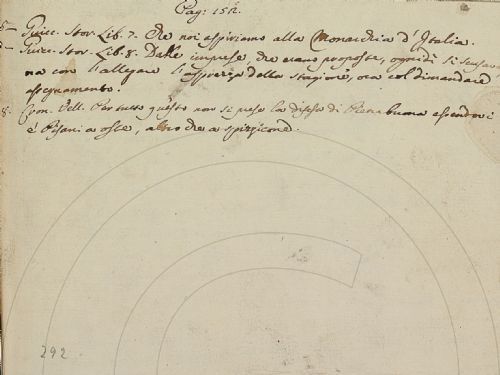 Pag: 152.
5 — Guicc. Stor. Lib. 7. Che noi aspiriamo alla Monarchia d'Italia.
— Guicc. Stor. Lib. 8. Dalle imprese, che erano proposte, ognidì si scusa-
va con l'allegare l'asprezza della stagione, ora col dimandare
assegnamento.
8. Cron. Vell. Per tutto questo non si prese la difesa di buona essendovi
e' Pisani a oste, altro che a spizzicone.
292